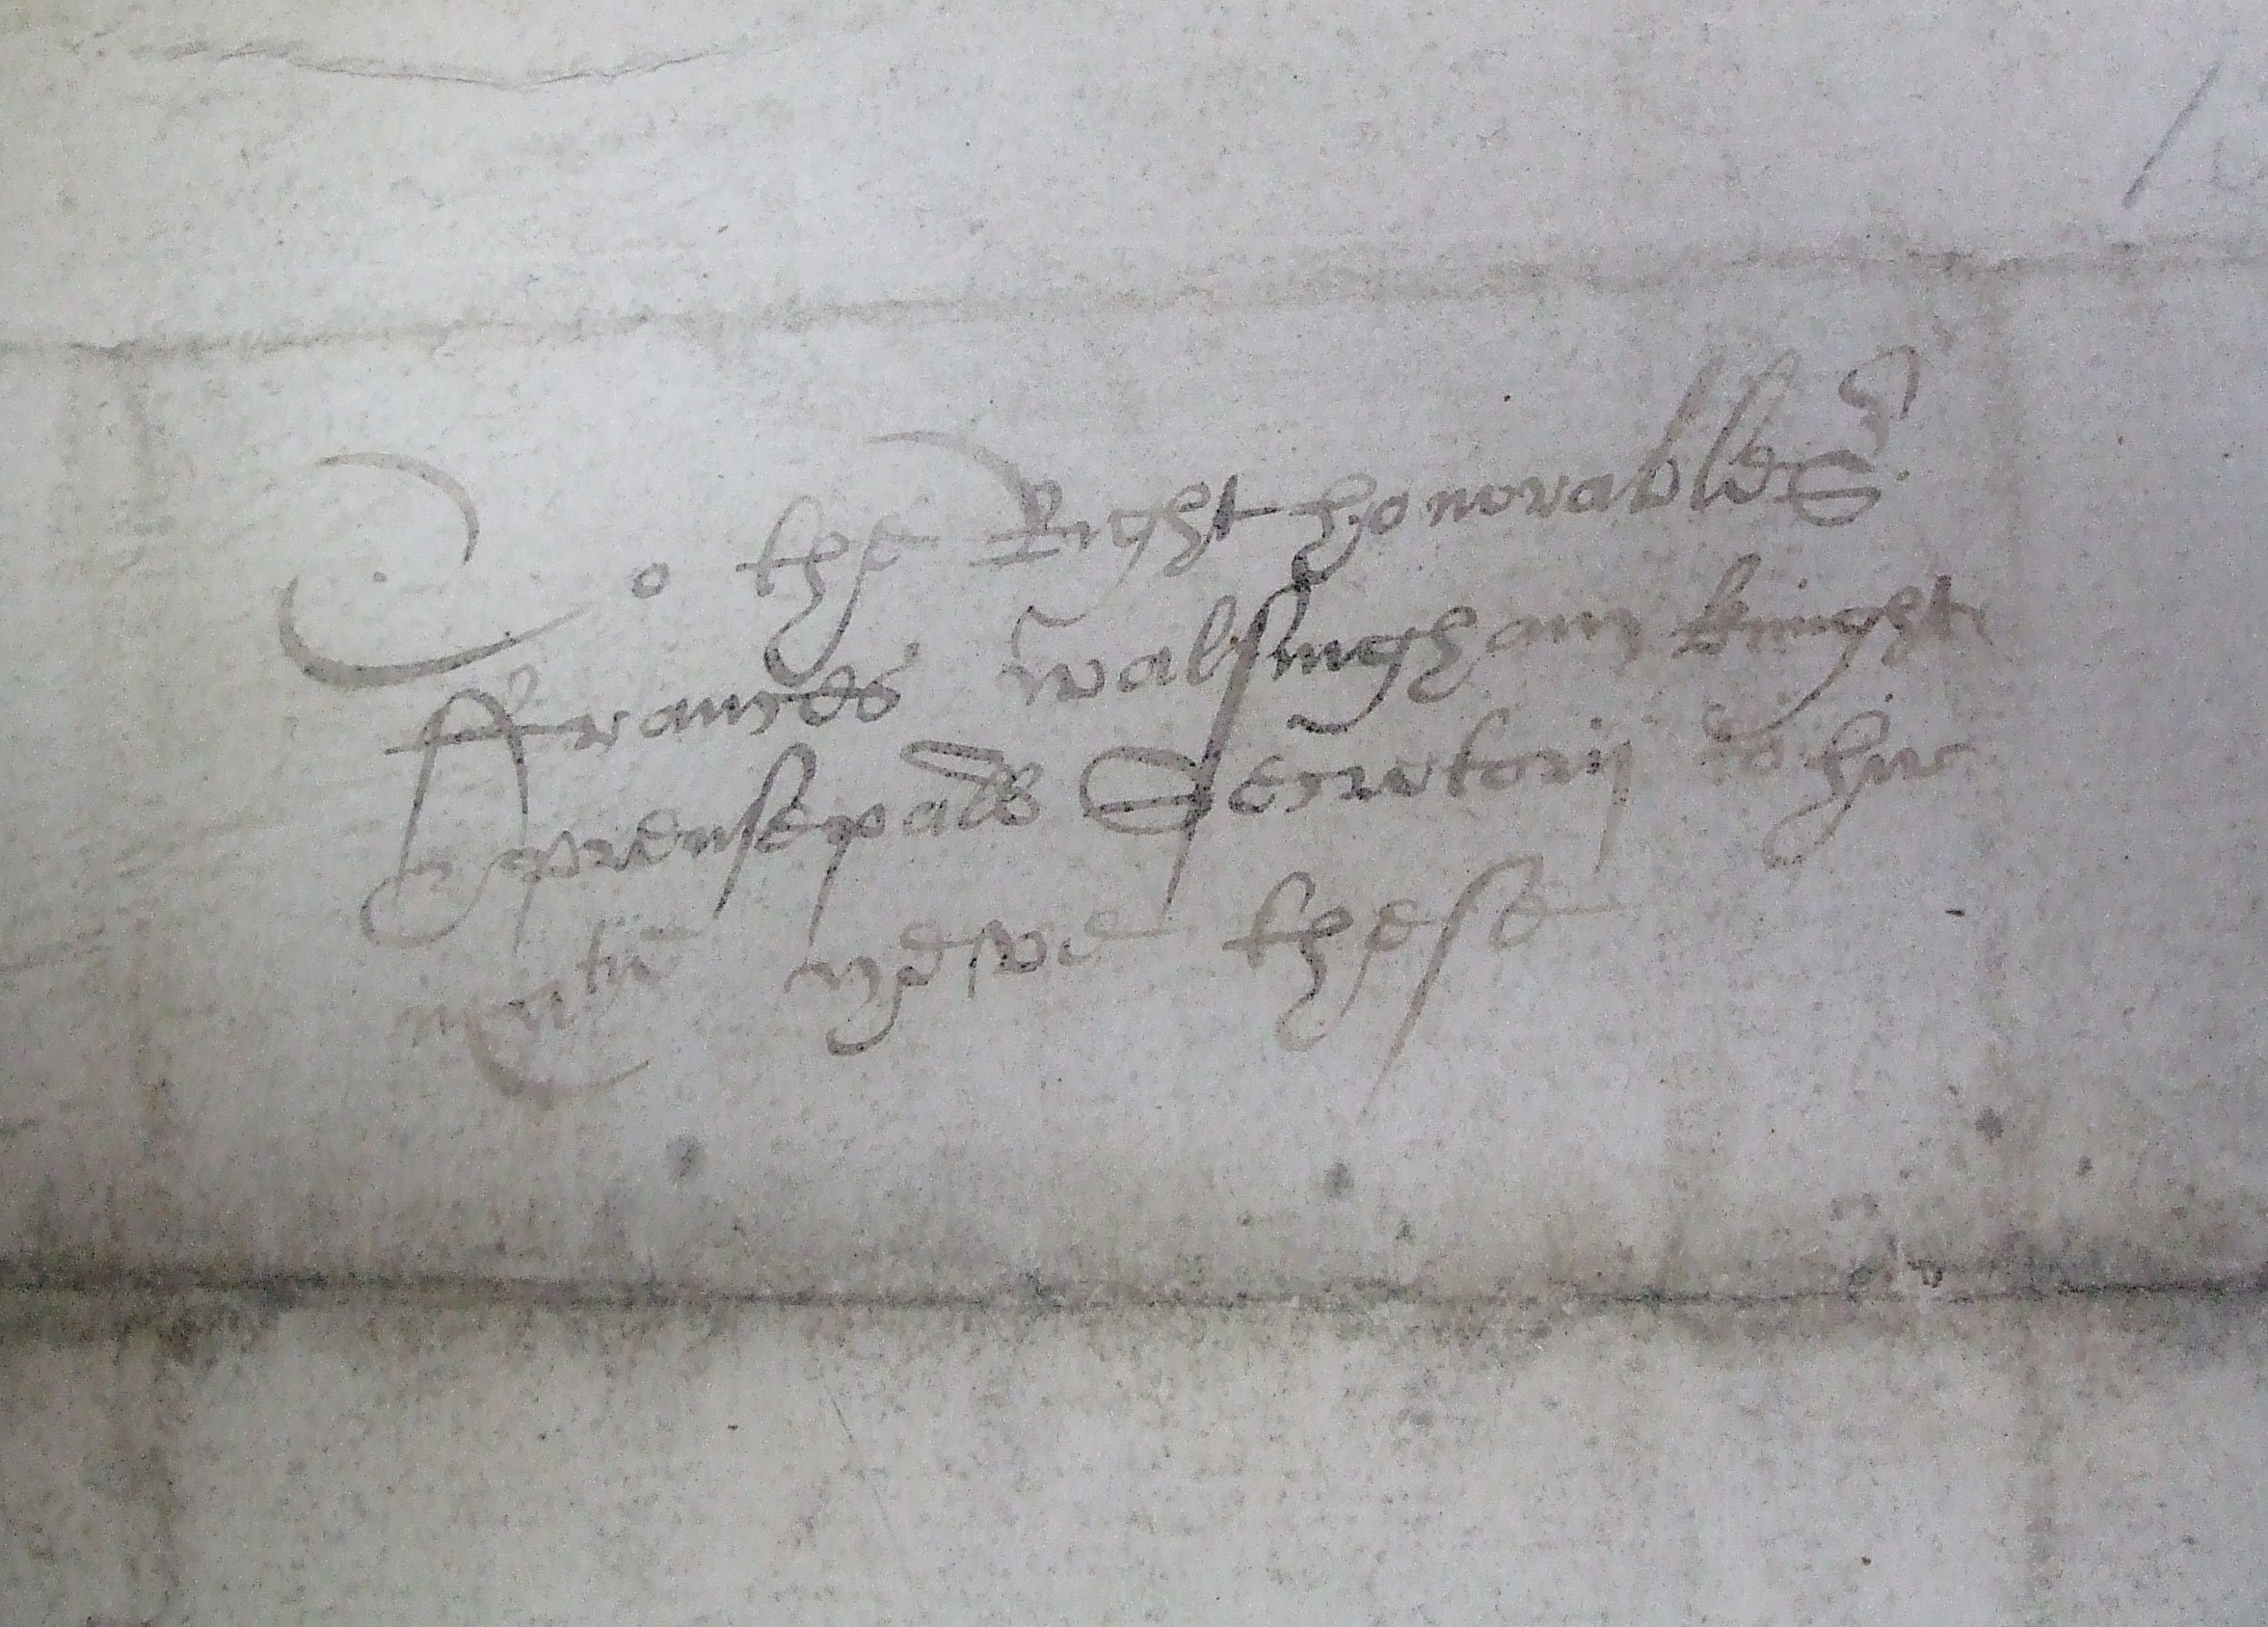 To the Right honorable Sr
ffraunces walsingham knight
prensepall Secretorij to hir
matie yeve these